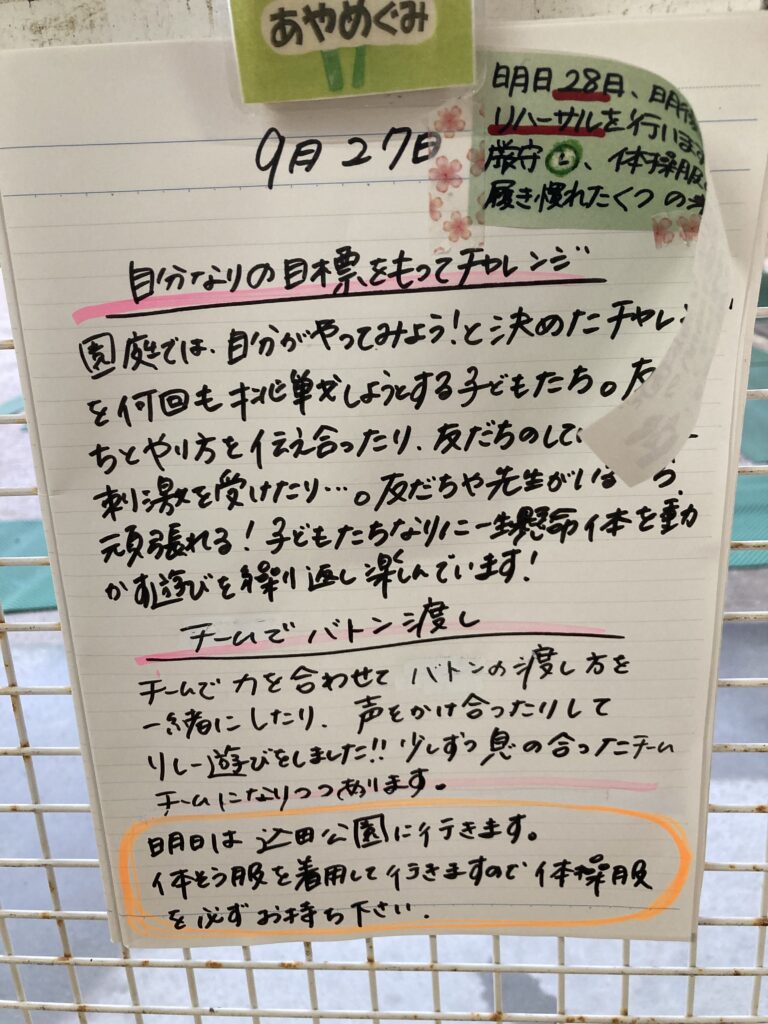 あやめぐみ
9月27日
明日28日、
リハーサルを行います
厳守 体操服
履き慣れたくつ の
自分なりの目標をもってチャレンジ
園庭では、自分がやってみよう!と決めたチャレン
を何回も挑戦しようとする子どもたち。友
ちとやり方を伝え合ったり、友だちのして
刺激を受けたり…。友だちや先生がいる
頑張れる!子どもたちなりに一生懸命体を動
かす遊びを繰り返し楽しんでいます!
チームでバトン渡し
チームで力を合わせて バトンの渡し方を
一緒にしたり、声をかけ合ったりして
リレー遊びをしました!!少しずつ息の合ったチーム
チームになりつつあります。
明日は 公園に行きます。
体そう服を着用して行きますので体操服
を必ずお持ち下さい.